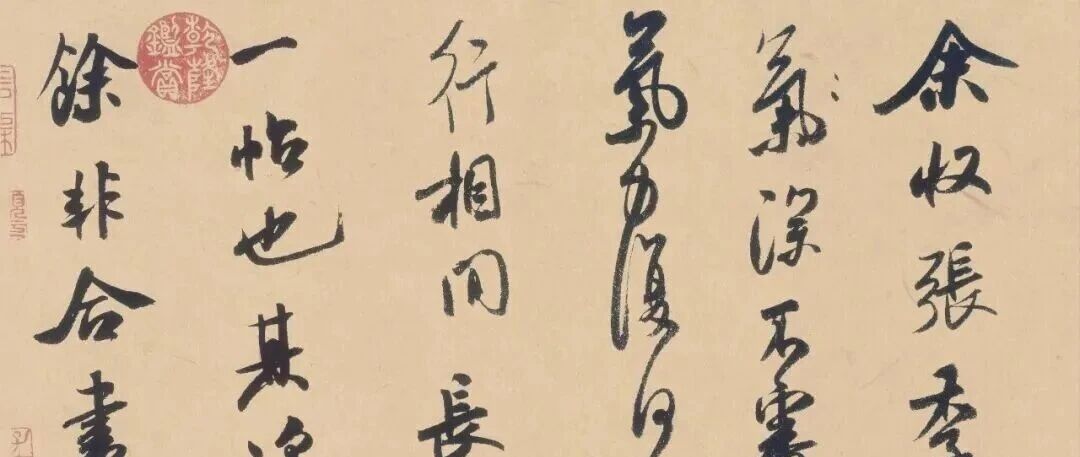 余收張季
氣深不審
氣力復何
行相間長
一帖也其次
餘非合書
乾隆鑑賞